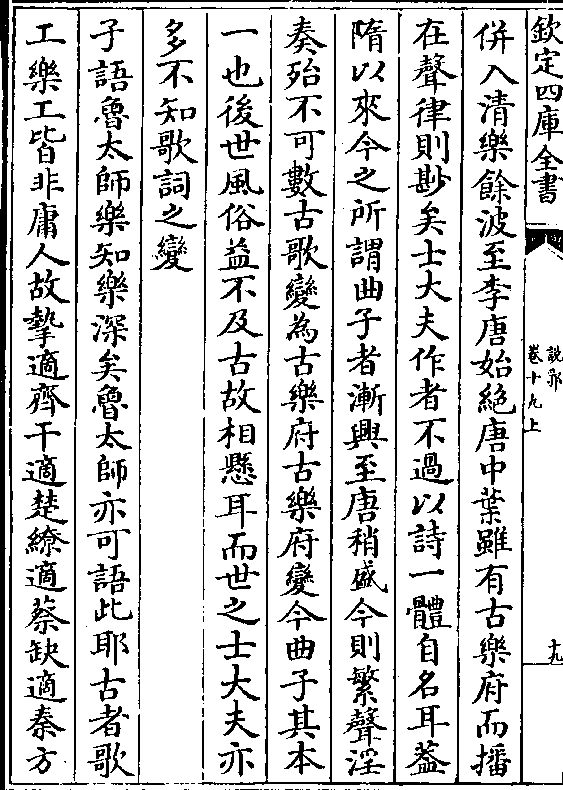 欽定四庫全書
說郛
卷十九上
十九
併入清樂餘波至李唐始絕唐中葉雖有古樂府而播
在聲律則尠矣士大夫作者不過以詩一體自名耳蓋
隋以來今之所謂曲子者漸興至唐稍盛今則繁聲淫
奏殆不可數古歌變為古樂府古樂府變今曲子其本
一也後世風俗益不及古故相懸耳而世之士大夫亦
多不知歌詞之變
子語魯太師樂知樂深矣魯太師亦可語此耶古者歌
工樂工皆非庸人故摯適齊干適楚繚適蔡缺適秦方